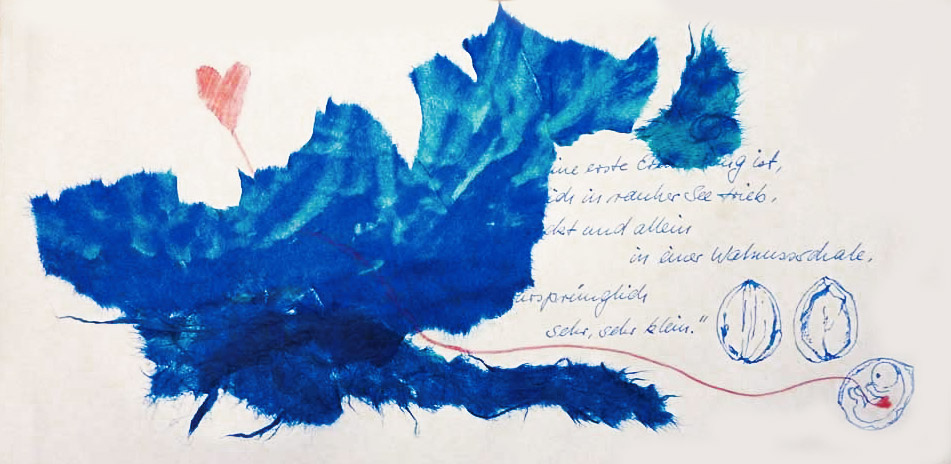 erste ist,
ich in rauher See trieb,
und allein
in einer Walnussschale.
ursprünglich
sehr, sehr klein."